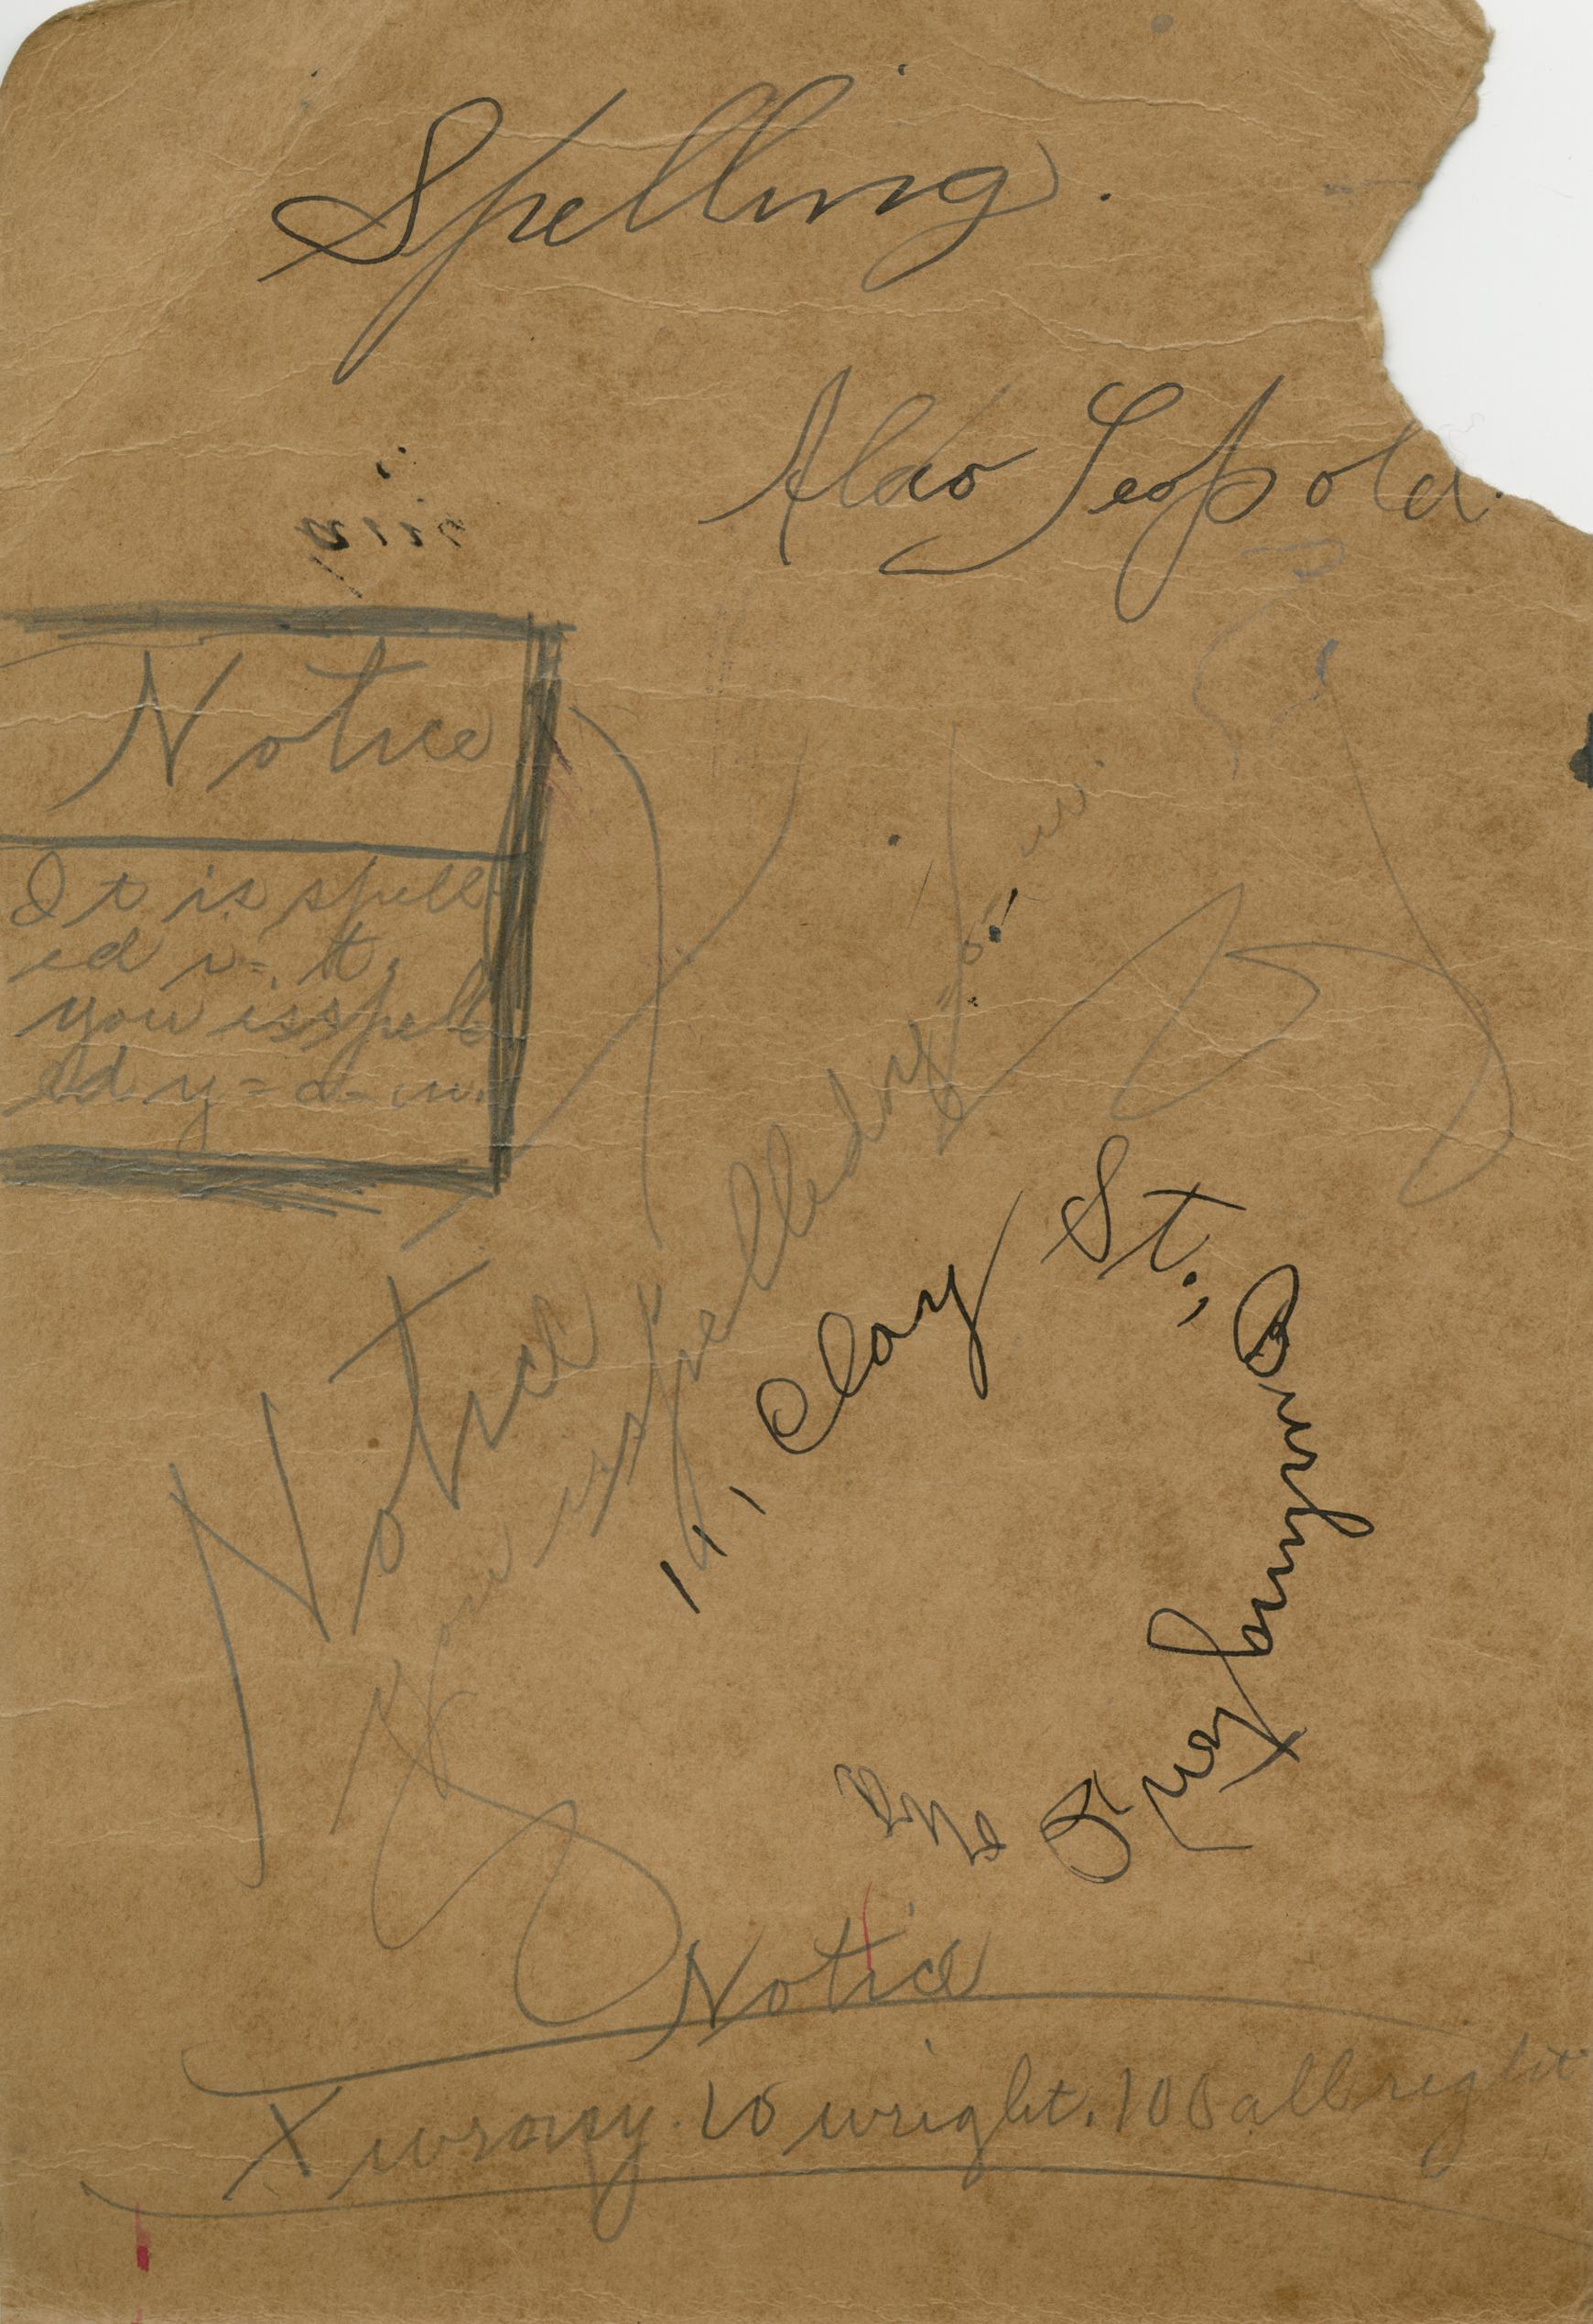 Spelling.
Aldo Leopold.
Notice
It is spell
ed i=t,
you is spell
ed y=o=u.
Notice
You is spelled y=o=u.
111, Clay St.,
Burlington,
Notice
X wrong. 10 wright. 100 all right